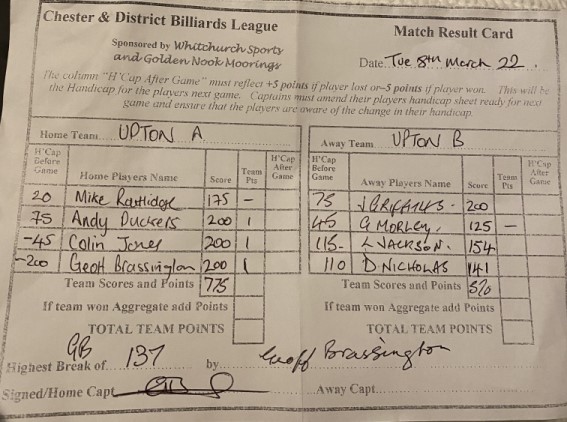 Chester & District Billiards League
Match Result Card
Sponsored by Whitchurch Sports
and Golden Nook Moorings
Date Tue 8th March 22.
The column "H'Cap After Game" must reflect +5 points if player lost or -5 points if player won. This will be
the Handicap for the players next game. Captains must amend their players handicap sheet ready for next
game and ensure that the players are aware of the change in their handicap.
Home Team UPTON A
Away Team UPTON B
H'Cap Before Game Home Players Name Score Team Pts H'Cap After Game
20 Mike Rathidge 175 -
75 Andy Duckers 200 1
-45 Colin Jones 200 1
-200 Geoff Brassington 200 1
Team Scores and Points 775
If team won Aggregate add Points
TOTAL TEAM POINTS
H'Cap Before Game Away Players Name Score Team Pts H'Cap After Game
75 J GRIFFITHS. 200
45 G MORLEY. 125 -
115- L JACKSON. 154
110 D NICHOLAS 141
Team Scores and Points
If team won Aggregate add Points
TOTAL TEAM POINTS
GB
Highest Break of 137 by Geoff Brassington
Signed/Home Capt
Away Capt